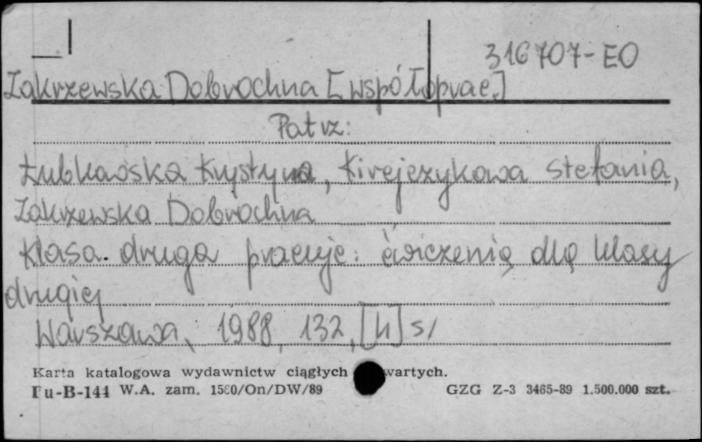 316707-EO
Zakrzewska Dobrochna [współprac.]
Patrz:
Łubkowska Krystyna, Kirejczykowa Stefania,
Zakrzewska Dobrochna
Klasa druga pracuje: ćwiczenia dla klasy
drugiej
Warszawa, 1988, 132, [4] s/
Karta katalogowa wydawnictw ciągłych wartych.
Pu-B-144 W.A. zam. 1580/On/DW/89 GZG Z-3 3465-89 1.500.000 szt.